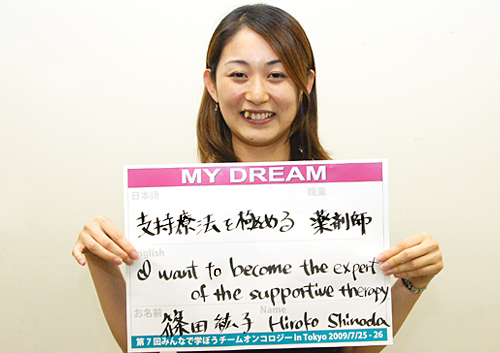 MY DREAM
日本語 職業
支持療法を極める 薬剤師
English
I want to become the expert
of the supportive therapy
お名前 Name
篠田 紘子 Hiroko Shinoda
第7回みんなで学ぼうチームオンコロジー in Tokyo 2009/7/25 - 26